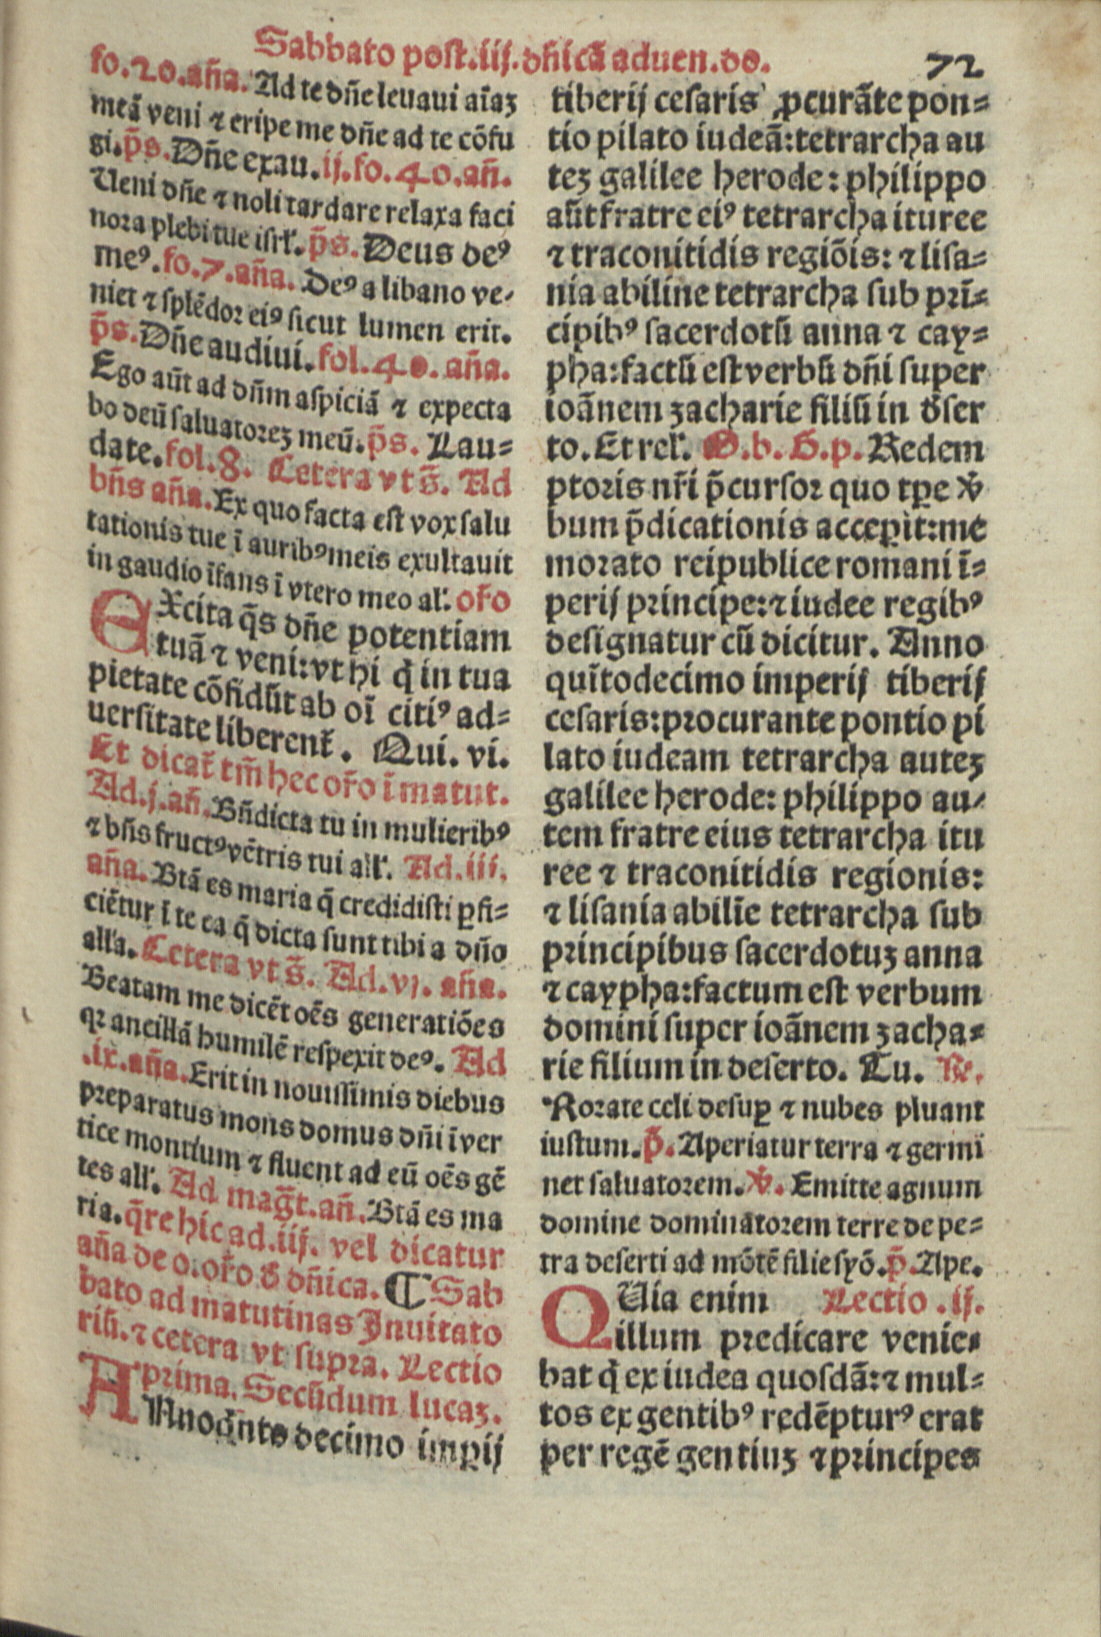 Sabbato post.iij.dñicã aduen.do.
72
fo.20.aña. Ad te dñe leuaui aĩaʒ
meã veni ⁊ eripe me dñe ad te cõfu
gi.p̃s. Dñe exau.ij.fo.40.añ.
Ueni dñe ⁊ noli tardare relaxa faci
nora plebi tue isrl'.p̃s. Deus deꝰ
meꝰ.fo.7.aña. Deꝰ a libano ve-
niet ⁊ splẽdor eiꝰ sicut lumen erit.
p̃s. Dñe audiui.fol.40.aña.
Ego aũt ad dñm aspiciã ⁊ expecta
bo deũ saluatoreʒ meũ.p̃s. Lau=
date.fol.8. Cetera vt s̃. Ad
bñs aña. Ex quo facta est vox salu
tationis tue ĩ auribꝰ meis exultauit
in gaudio ĩfans ĩ vtero meo al'. or̃o
EXcita q̃s dñe potentiam
tuã ⁊ veni:vt hi q̇ in tua
pietate cõfidũt ab oĩ citiꝰ ad=
uersitate liberent̃. Qui. vi.
Et dicat̃ tm̃ hec or̃o ĩ matut.
Ad.j.añ. Bñdicta tu in mulieribꝰ
⁊ bñs fructꝰ vẽtris tui all'. Ad.iii.
aña. Btã es maria q̃ credidisti ꝑfi=
ciẽtur ĩ te ea q̃ dicta sunt tibi a dño
all'a. Cetera vt s̃. Ad.vj. aña.
Beatam me dicẽt oẽs generatiões
qꝛ ancillã humilẽ respexit deꝰ. Ad
.ix.aña. Erit in nouissimis diebus
preparatus mons domus dñi ĩ ver
tice montium ⁊ fluent ad eũ oẽs gẽ
tes all'. Ad mag̃t.añ. Btã es ma
ria.q̃re hic ad.iij. vel dicatur
aña de o.or̃o ẟ dñica. ¶ Sab
bato ad matutinas Inuitato
riũ.⁊ cetera vt supra. Lectio
prima. Secũdum lucaʒ.
ANno q̃nto decimo impij
tiberij cesaris ꝓcurãte pon=
tio pilato iudeã:tetrarcha au
teʒ galilee herode:philippo
aũt fratre eiꝰ tetrarcha ituree
⁊ traconitidis regiõis: ⁊ lisa=
nia abiline tetrarcha sub prĩ=
cipibꝰ sacerdotũ anna ⁊ cay=
pha:factũ est verbũ dñi super
ioãnem zacharie filiũ in ẟser
to. Et rel'. O.b.G.p. Redem
ptoris nr̃i p̃cursor quo tꝑe v̾
bum p̃dicationis accepit:me
morato reipublice romani ĩ=
perij principe:⁊ iudee regibꝰ
designatur cũ dicitur. Anno
quĩtodecimo imperij tiberij
cesaris:procurante pontio pi
lato iudeam tetrarcha auteʒ
galilee herode: philippo au-
tem fratre eius tetrarcha itu
ree ⁊ traconitidis regionis:
⁊ lisania abilĩe tetrarcha sub
principibus sacerdotuʒ anna
⁊ caypha:factum est verbum
domini super ioãnem zacha=
rie filium in deserto. Tu. ℟.
Rorate celi desuꝑ ⁊ nubes pluant
iustum.p̃. Aperiatur terra ⁊ germi
net saluatorem.℣. Emitte agnum
domine dominatorem terre de pe=
tra deserti ad mõtẽ filie syõ.p̃. Ape.
QUia enim Lectio .ij.
illum predicare venie-
bat q̇ ex iudea quosdã:⁊ mul=
tos ex gentibꝰ redẽpturꝰ erat
per regẽ gentiuʒ ⁊ principes